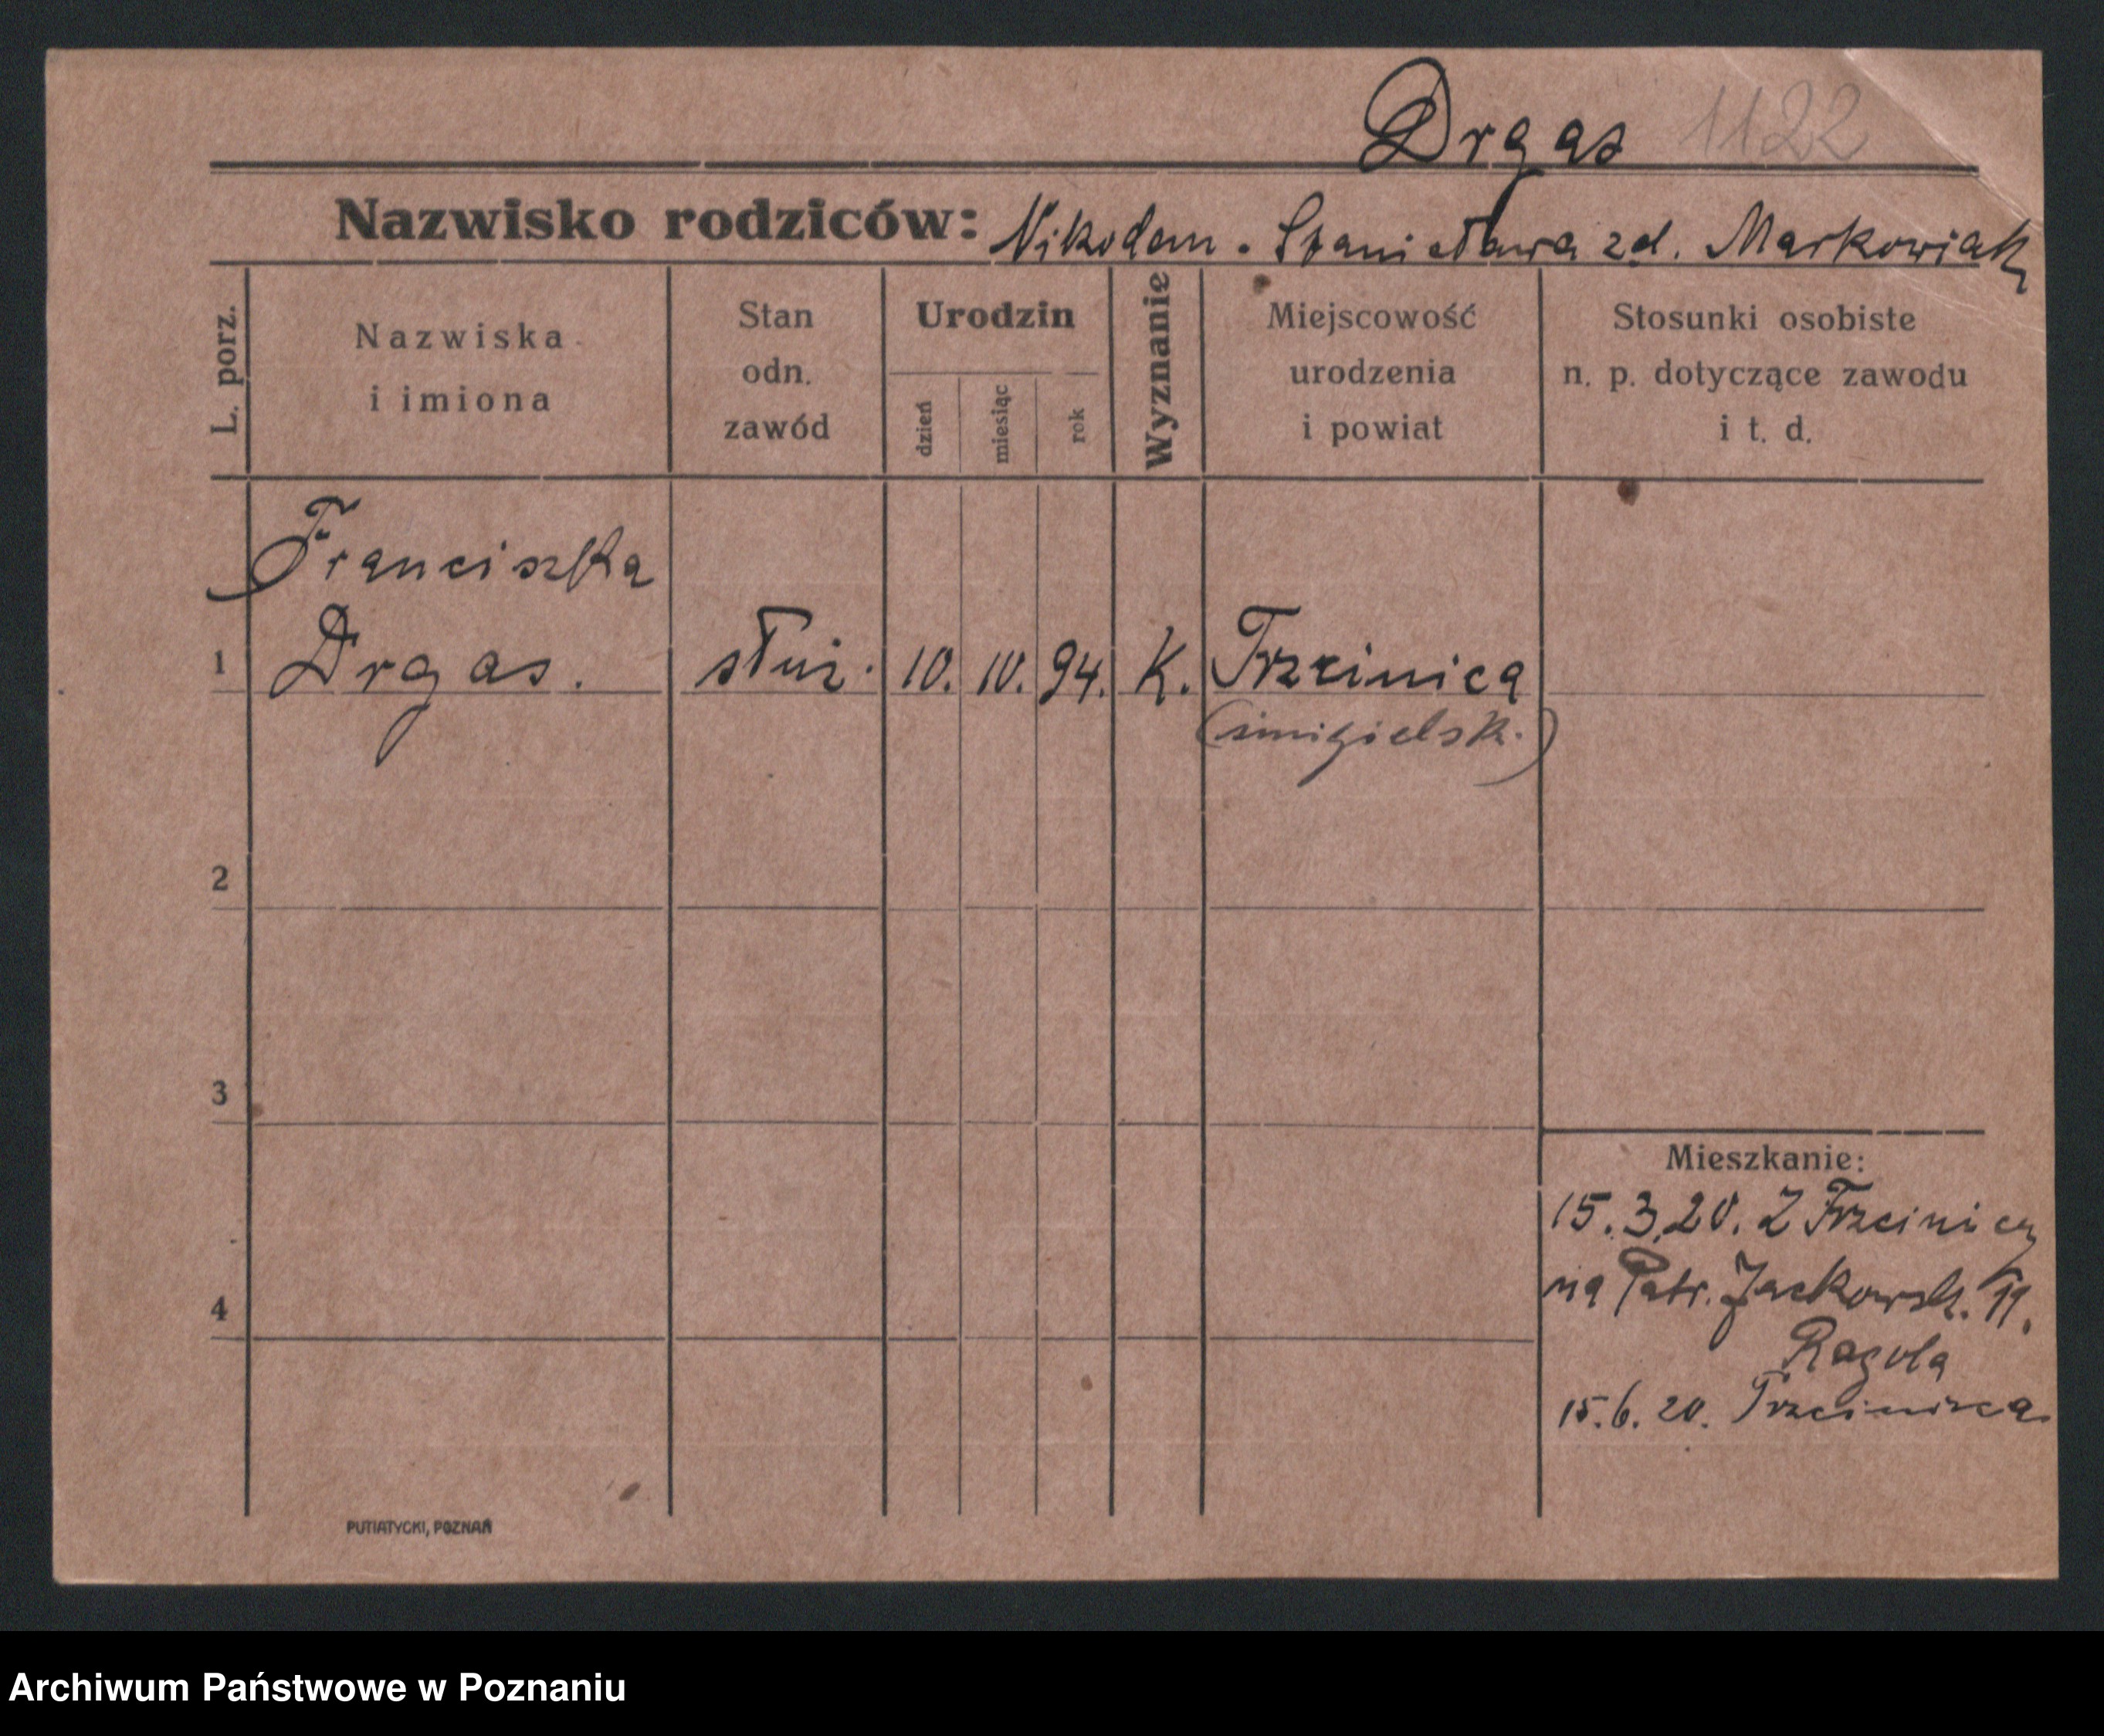 Drgas 1122
Nazwisko rodziców: Nikodem - Stanisława zd. Markowiak
L. porz.
Nazwiska i imiona
Stan odn. zawód
Urodzin
dzień
miesiąc
rok
Wyznanie
Miejscowość urodzenia i powiat
Stosunki osobiste n. p. dotyczące zawodu i t. d.
Franciszka
1 Drgas. służ. 10. 10. 94. K. Trzcinica
(śmigielsk.)
2
3
Mieszkanie:
15.3.20. Z Trzcinicy
na Patr. Jackowsk. 19.
4
Ragola
15.6.20. Trzcinica
PUTIATYCKI, POZNAŃ
Archiwum Państwowe w Poznaniu